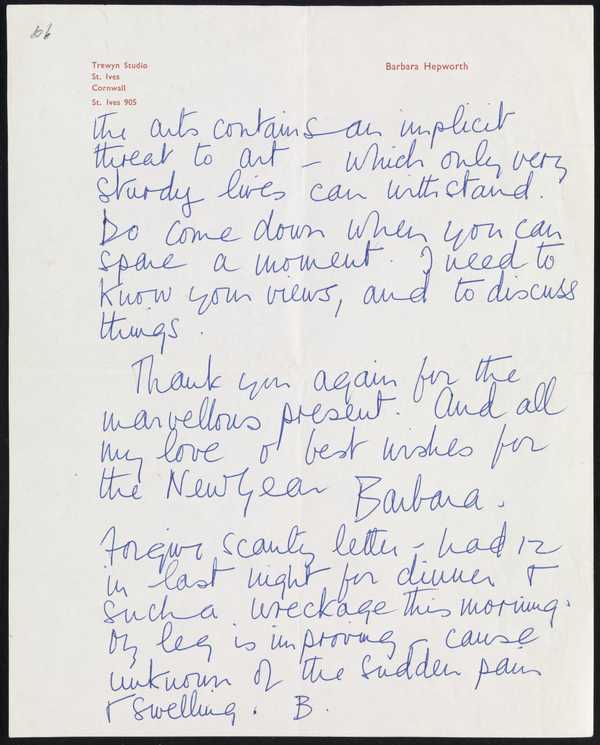 106
Trewyn Studio
St. Ives
Cornwall
St. Ives 905
Barbara Hepworth
the arts contains an implicit
threat to art – which only very
sturdy lives can withstand.
Do come down when you can
spare a moment. I need to
know your views, and to discuss
things.
Thank you again for the
marvellous present. And all
my love & best wishes for
the New Year Barbara.
Forgive scanty letter – had 12
in last night for dinner &
such a wreckage this morning.
My leg is improving – cause
unknown of the sudden pain
& swelling. B.